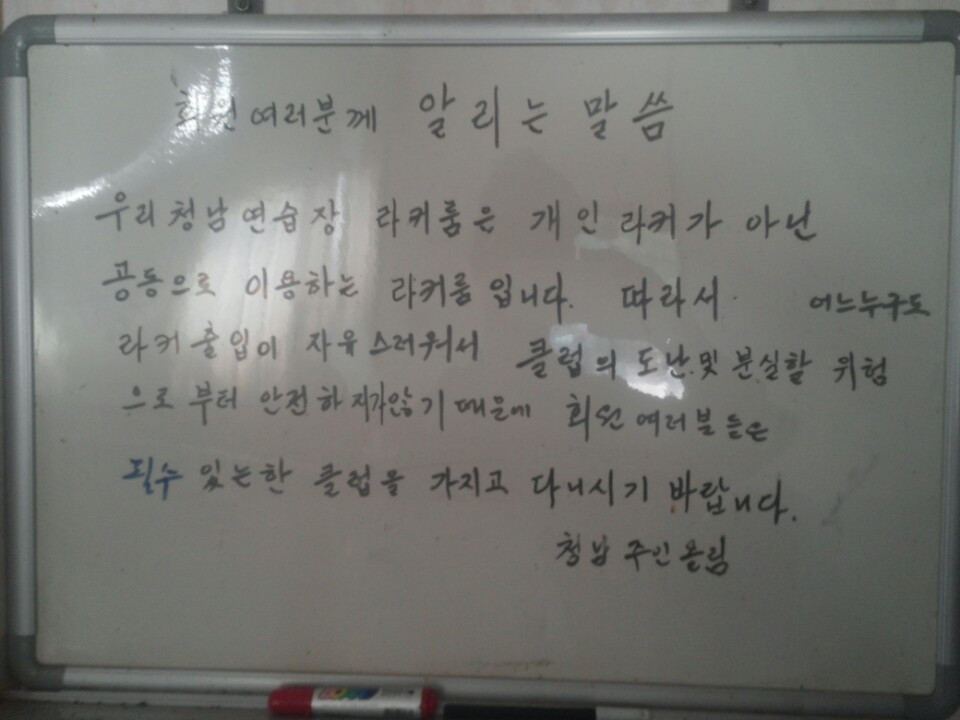 회원여러분께 알리는 말씀
우리청남연습장 라커룸은 개인라커가 아닌
공동으로 이용하는 라커룸입니다. 따라서 어느누구도
라커출입이 자유스러워서 클럽의 도난및 분실할 위험
으로부터 안전하지가않기때문에 회원여러분들은
될수있는한 클럽을 가지고 다니시기 바랍니다.
청남주인올림